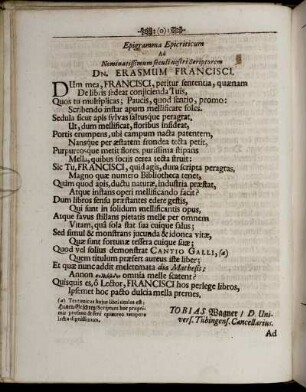 (o)
Epigramma Epicriticum
Ad
Nominatissimum seculi nostri Scriptorem
DN. ERASMUM FRANCISCI.
DUm mea, FRANCISCI, petitur sententia, quæ nam
De libris sedeat conjicienda Tuis,
Quos tu multiplicas; Paucis, quod sentio, promo:
Scribendo instar apum mellificare soles.
Sedula sicut apis sylvas saltusque peragrat,
Ut, dum mellificat, floribus insideat,
Portis erumpens, ubi campum nacta patentem,
Nansque per æstatem frondea tecta petit,
Purpureosque metit flores, purissima stipans
Mella, quibus socii cerea tecta struit:
Sic Tu, FRANCISCI, quid agis, dum scripta peragras,
Magno quæ numero Bibliotheca tenet,
Quàm quod apis, ductu naturæ, industria præstat,
Atque instans operi mellificando facit?
Dum libros sensa præstantes edere gestis,
Qui sunt in solidum mellificantis opus,
Atque favus stillans pietatis melle per omnem
Vitam, quâ sola stat sua cuique salus;
Sed simul & monstrans jucunda & idonea vitæ,
Quæ sunt fortunæ tessera cuique suæ;
Quod vel solius demonstrat CANTIO GALLI, (a)
Quem titulum præsert aureus iste liber;
Et quæ nunc addit melctemata
Annon omnia melle scatent?
Quisquis es, ô Lector, FRANCISCI hos perlege libros,
Ipsemet hoc pacto dulcia mella premes,
TOBIAS Wagner / D. Uni-
vers. Tubingens. Cancellarius.
Ad